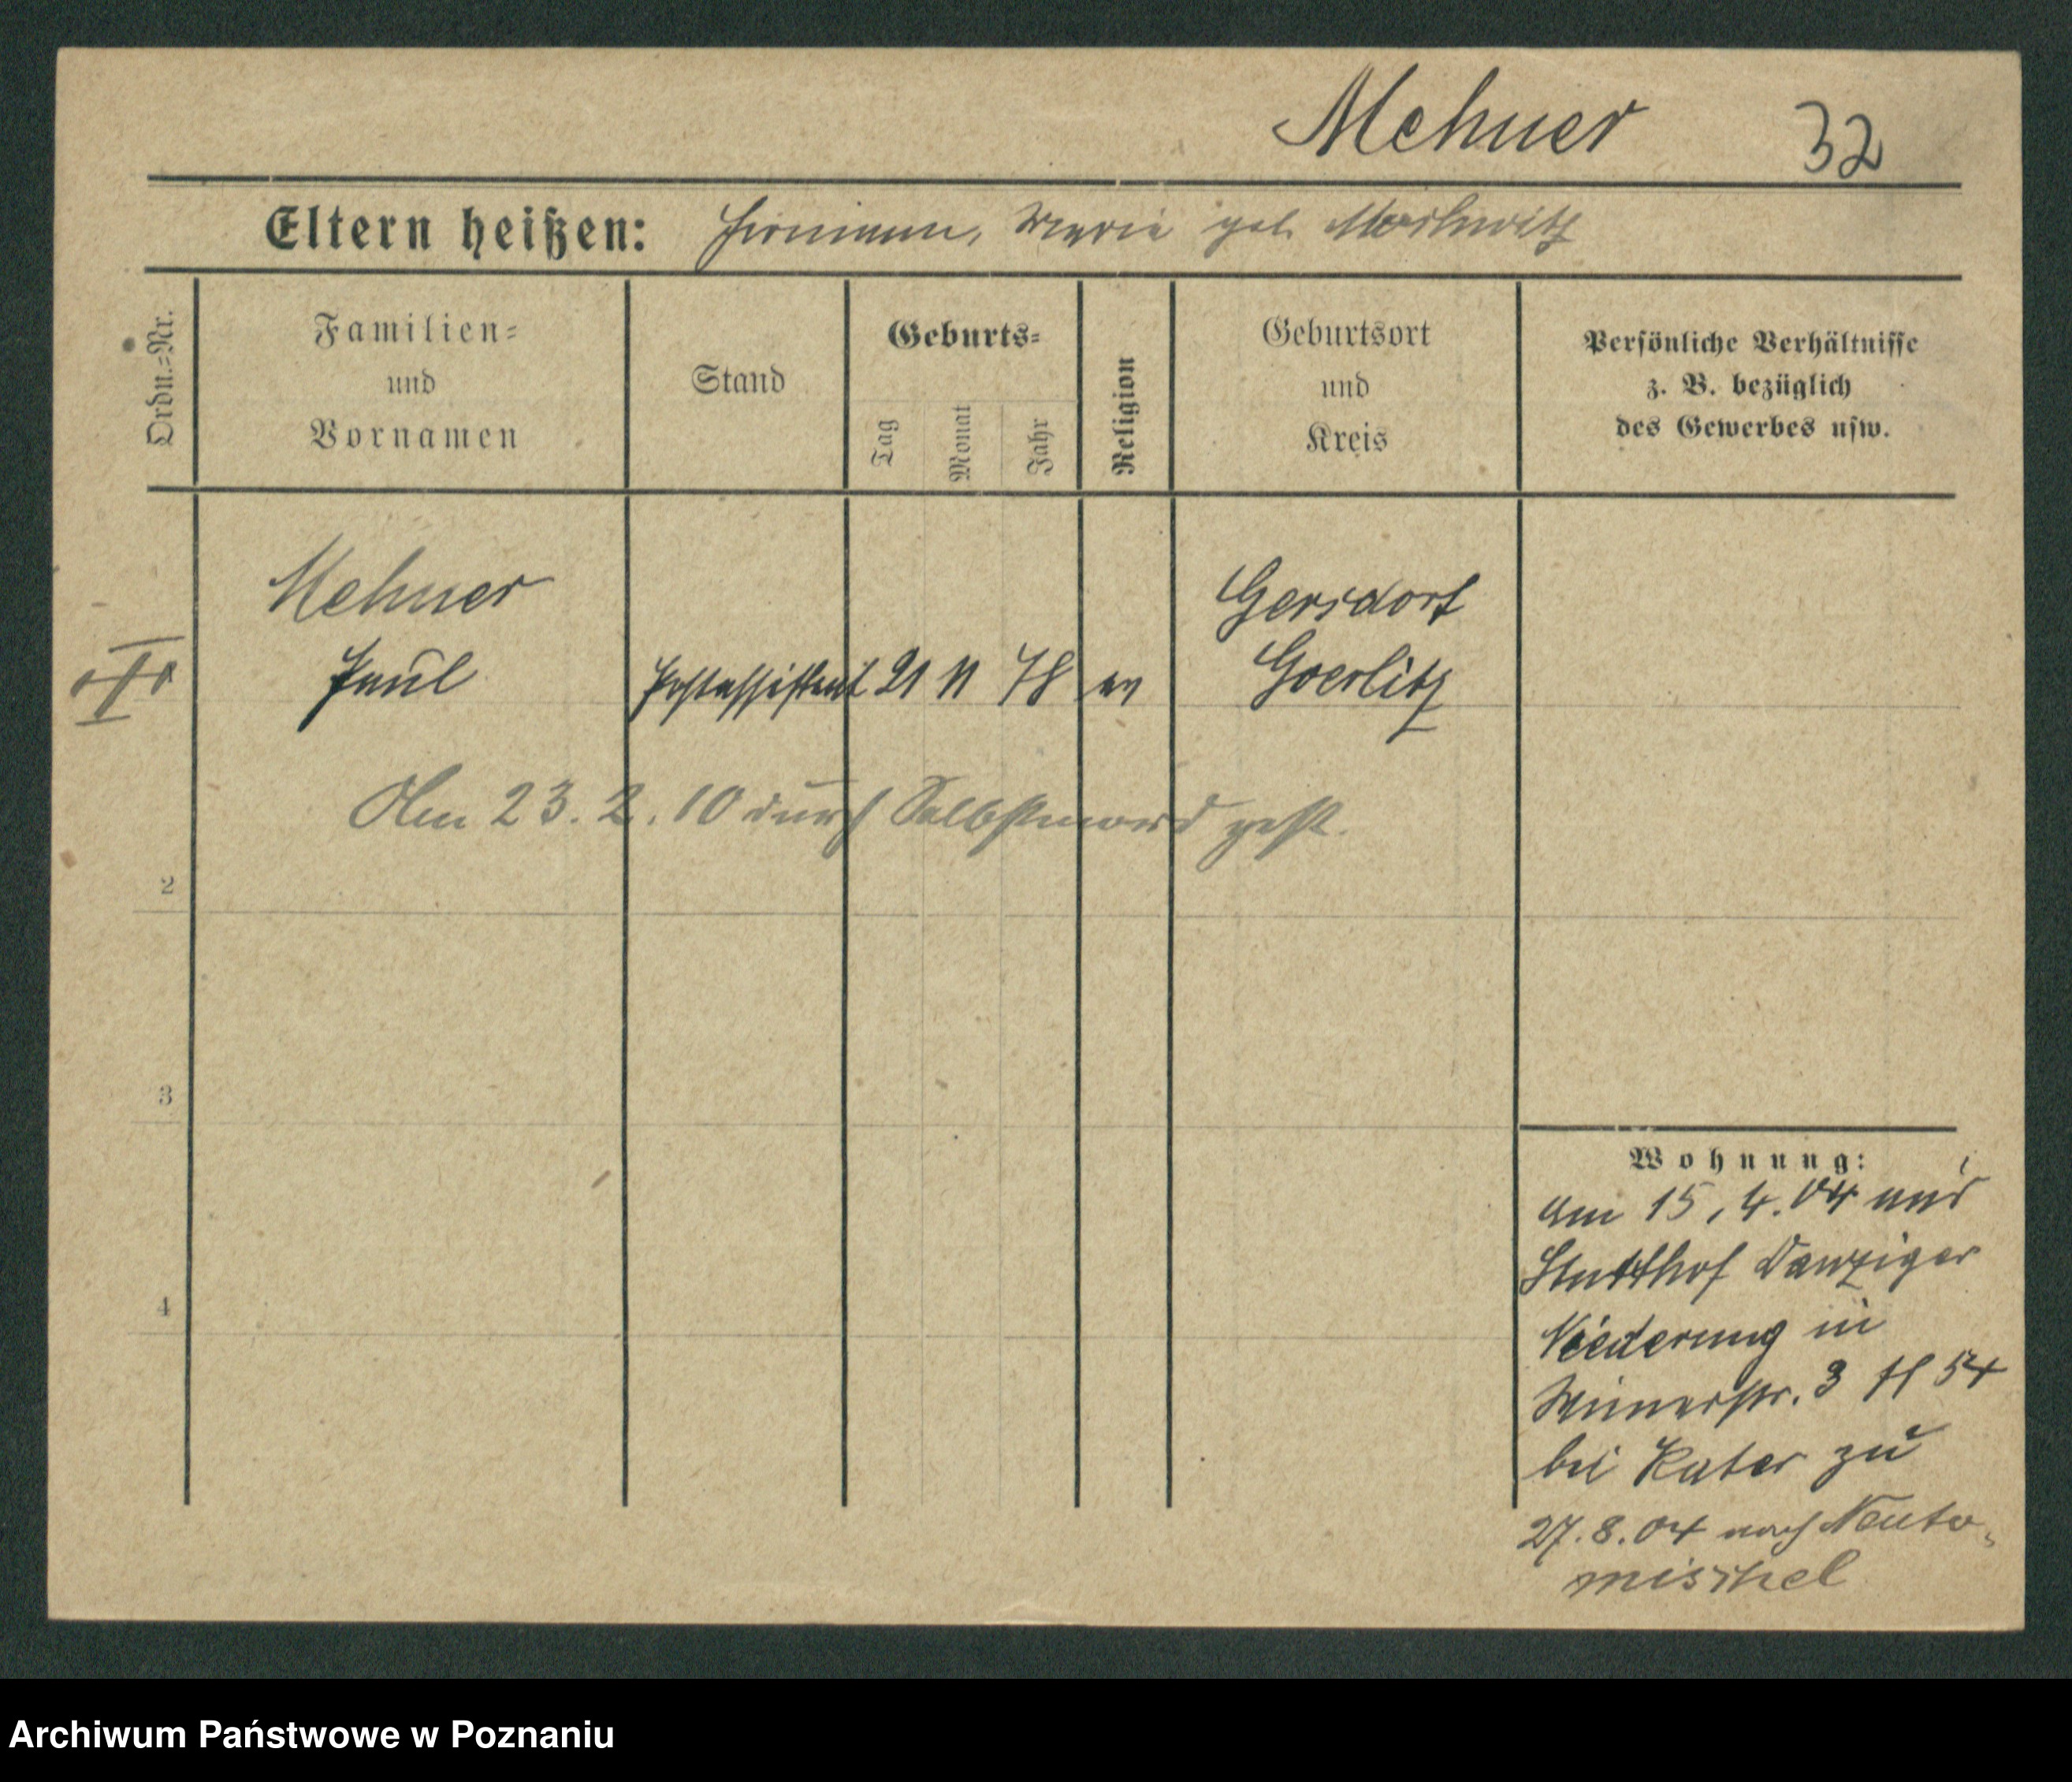 Mehner 32
Eltern heißen: Hermann, Marie geb.
Ordn.=Nr.
Familien=
und
Vornamen
Stand
Geburts=
Tag
Monat
Jahr
Religion
Geburtsort
und
Kreis
Persönliche Verhältnisse
z. B. bezüglich
des Gewerbes usw.
Mehner
Paul
Postassistent 21 11 78 ev
Gersdorf
Goerlitz
Am 23.2.10 durch Selbstmord gest.
2
3
4
Wohnung:
am 15.4.04 aus
Stutthof Danziger
Niederung in
3 H 54
bei Kater zu
27.8.04 nach Neuto-
mischel
Archiwum Państwowe w Poznaniu